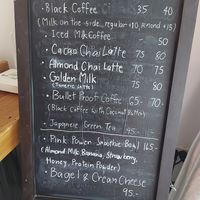 • Black Coffee 35 40
(Milk on the side... regular +10 Almond +15)
• Iced Milk Coffee 50
• Cacao Chai Latte 75 80
• Almond Chai Latte 70 75
• Golden Milk 75 80
(Tumeric Latte)
• Bullet Proof Coffee 65- 70-
(Black Coffee with Coconut Butter)
• Japanese Green Tea 95-
• Pink Power Smoothie Bowl 165-
(Almond Milk Banana, Strawberry,
Honey, Protein Powder)
• Bagel & Cream Cheese
95-